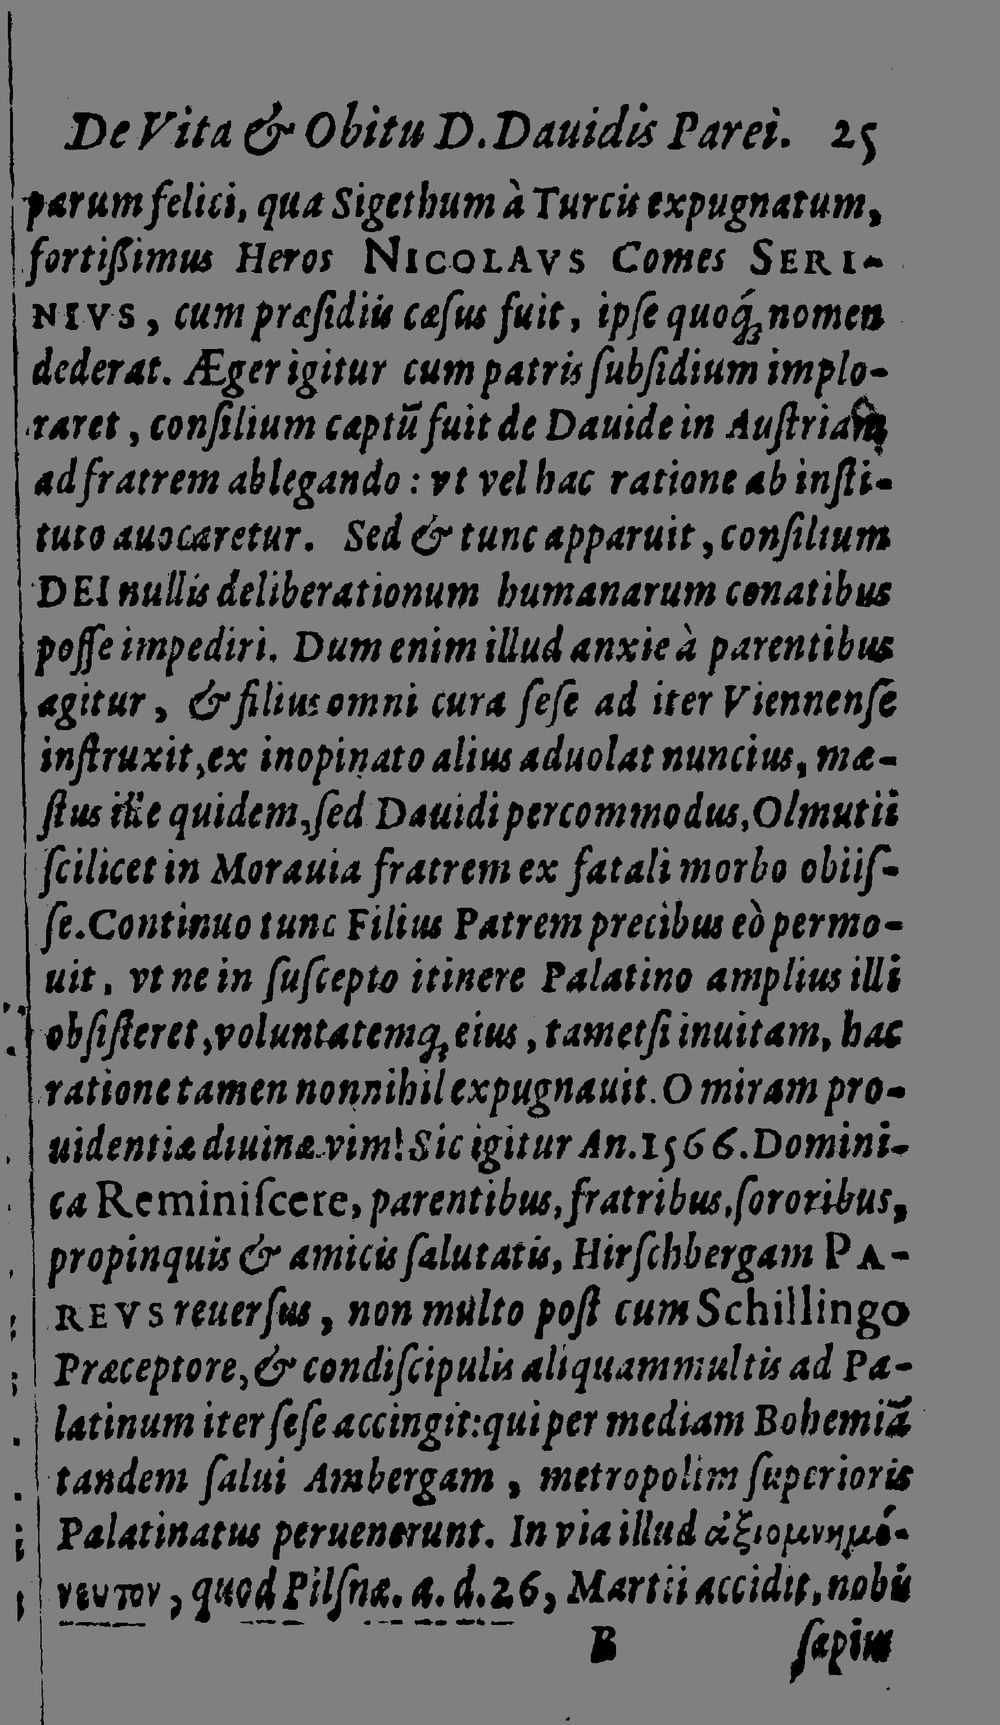 De Vita & Obitu D. Dauidis Parei. 25
parum felici, qua Sigethum à Turcis expugnatum,
fortißimus Heros NICOLAVS Comes SERI-
NIVS, cum præſidiis cæſus fuit, ipſe quoq́; nomen
dederat. Æger igitur cum patris ſubſidium implo-
raret, conſilium captū fuit de Dauide in Auſtriam
ad fratrem ablegando: vt vel hac ratione ab inſti-
tuto auocaretur. Sed & tunc apparuit, conſilium
DEI nullis deliberationum humanarum conatibus
poſſe impediri. Dum enim illud anxie à parentibus
agitur, & filius omni cura ſeſe ad iter Viennenſe
inſtruxit, ex inopinato alius aduolat nuncius, mæ-
ſtus ille quidem, ſed Dauidi percommodus, Olmutii
ſcilicet in Morauia fratrem ex fatali morbo obiiſ-
ſe. Continuo tunc Filius Patrem precibus eò permo-
uit, vt ne in ſuſcepto itinere Palatino amplius illi
obſiſteret, voluntatemq; eius, tametſi inuitam, hac
ratione tamen nonnihil expugnauit. O miram pro-
uidentiæ diuinæ vim! Sic igitur An. 1566. Domini-
ca Reminiſcere, parentibus, fratribus, ſororibus,
propinquis & amicis ſalutatis, Hirſchbergam PA-
REVS reuerſus, non multo poſt cum Schillingo
Præceptore, & condiſcipulis aliquammultis ad Pa-
latinum iter ſeſe accingit: qui per mediam Bohemiã
tandem ſalui Ambergam, metropolim ſuperioris
Palatinatus peruenerunt. In via illud ἀξιομνημό-
νευτον, quod Pilſnæ. a. d. 26, Martii accidit, nobis
B ſapius